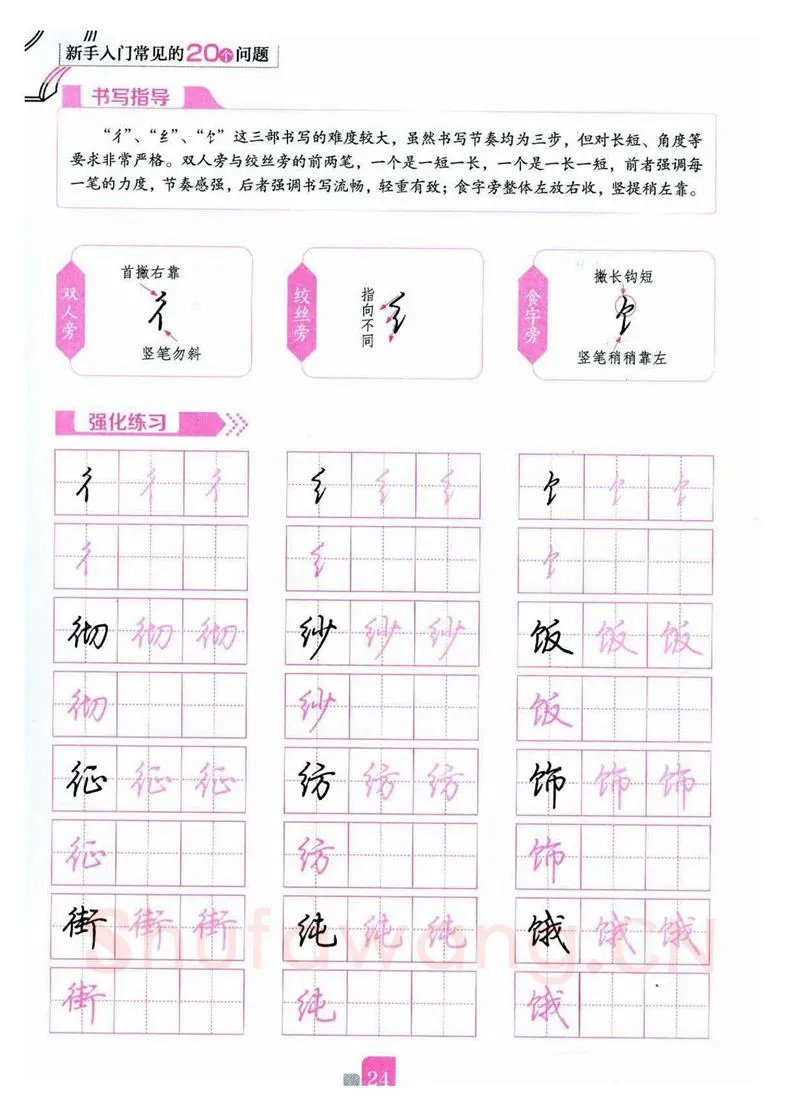 新手入门常见的20个问题
书写指导
“彳”、“纟”、“饣”这三部书写的难度较大，虽然书写节奏均为三步，但对长短、角度等
要求非常严格。双人旁与绞丝旁的前两笔，一个是一短一长，一个是一长一短，前者强调每
一笔的力度，节奏感强，后者强调书写流畅，轻重有致；食字旁整体左放右收，竖提稍左靠。
双人旁
首撇右靠
彳
竖笔勿斜
绞丝旁
指向不同
纟
食字旁
撇长钩短
饣
竖笔稍稍靠左
强化练习
彳 彳 彳 纟 纟 纟 饣 饣 饣
彳 纟 饣
彻 彻 彻 纱 纱 纱 饭 饭 饭
彻 纱 饭
征 征 征 纺 纺 纺 饰 饰 饰
征 纺 饰
街 街 街 纯 纯 纯 饿 饿 饿
街 纯 饿
Shufawang.CN
24